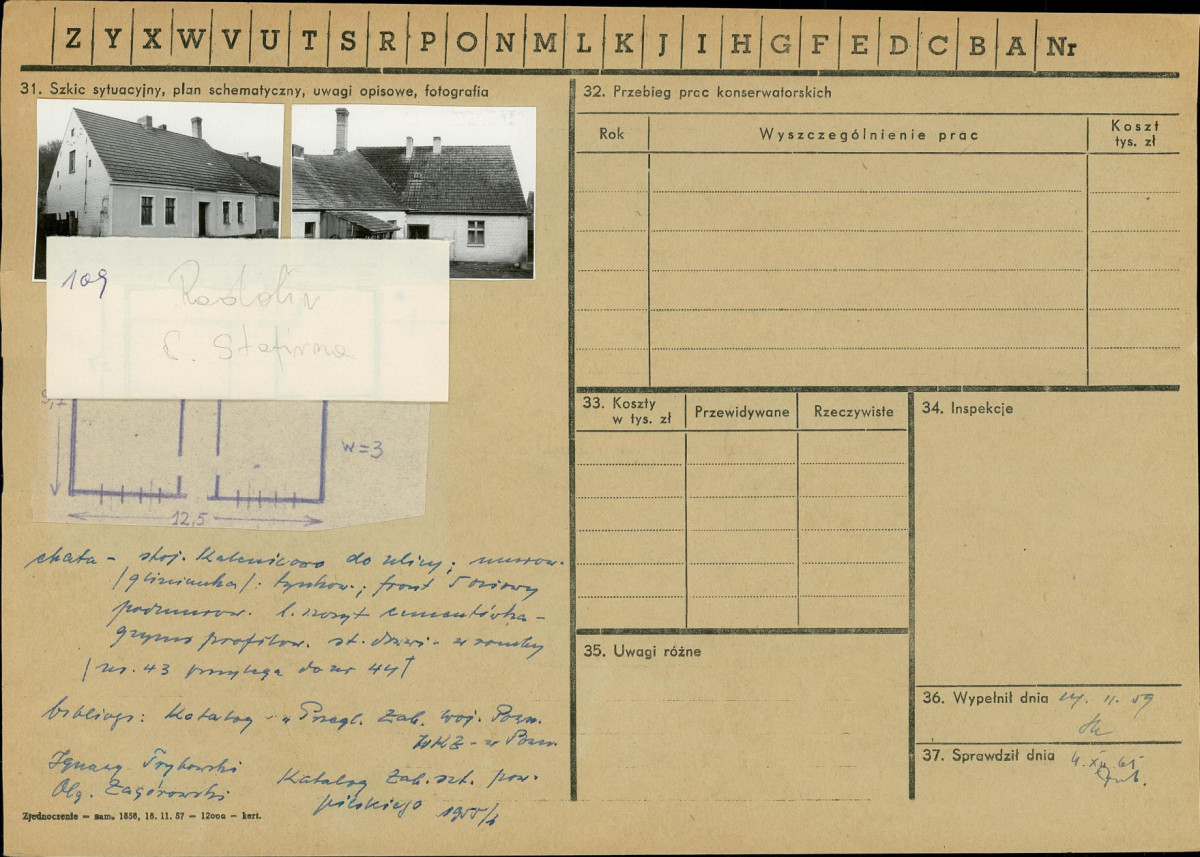 Z Y X W V U T S R P O N M L K J I H G F E D C B A Nr
31. Szkic sytuacyjny, plan schematyczny, uwagi opisowe, fotografia
109
Radolin
9,7
w=3
12,5
chata - stoj. Kalenicowo do ulicy; murow.
/glinianka/: tynkow.; front 5 osiowy
podmurow. l. szczyt cementówka -
gzyms profilow. st. drzwi - w ramy
/nr. 43 przylega do nr 44/
bibliogr: Katalog - "Przegl. Zab. woj. Pozn.
WKZ - w Pozn.
Ignacy Trybowski
Olg. Zagórowski
Katalog Zab. szt. pow.
pilskiego 1955/
Zjednoczenie — zam. 1858, 18. 11. 57 — 12000 — kart.
32. Przebieg prac konserwatorskich
Rok Wyszczególnienie prac Koszt tys. zł
33. Koszty w tys. zł Przewidywane Rzeczywiste
34. Inspekcje
35. Uwagi różne
36. Wypełnił dnia 14. II. 59
37. Sprawdził dnia 4. XII 65